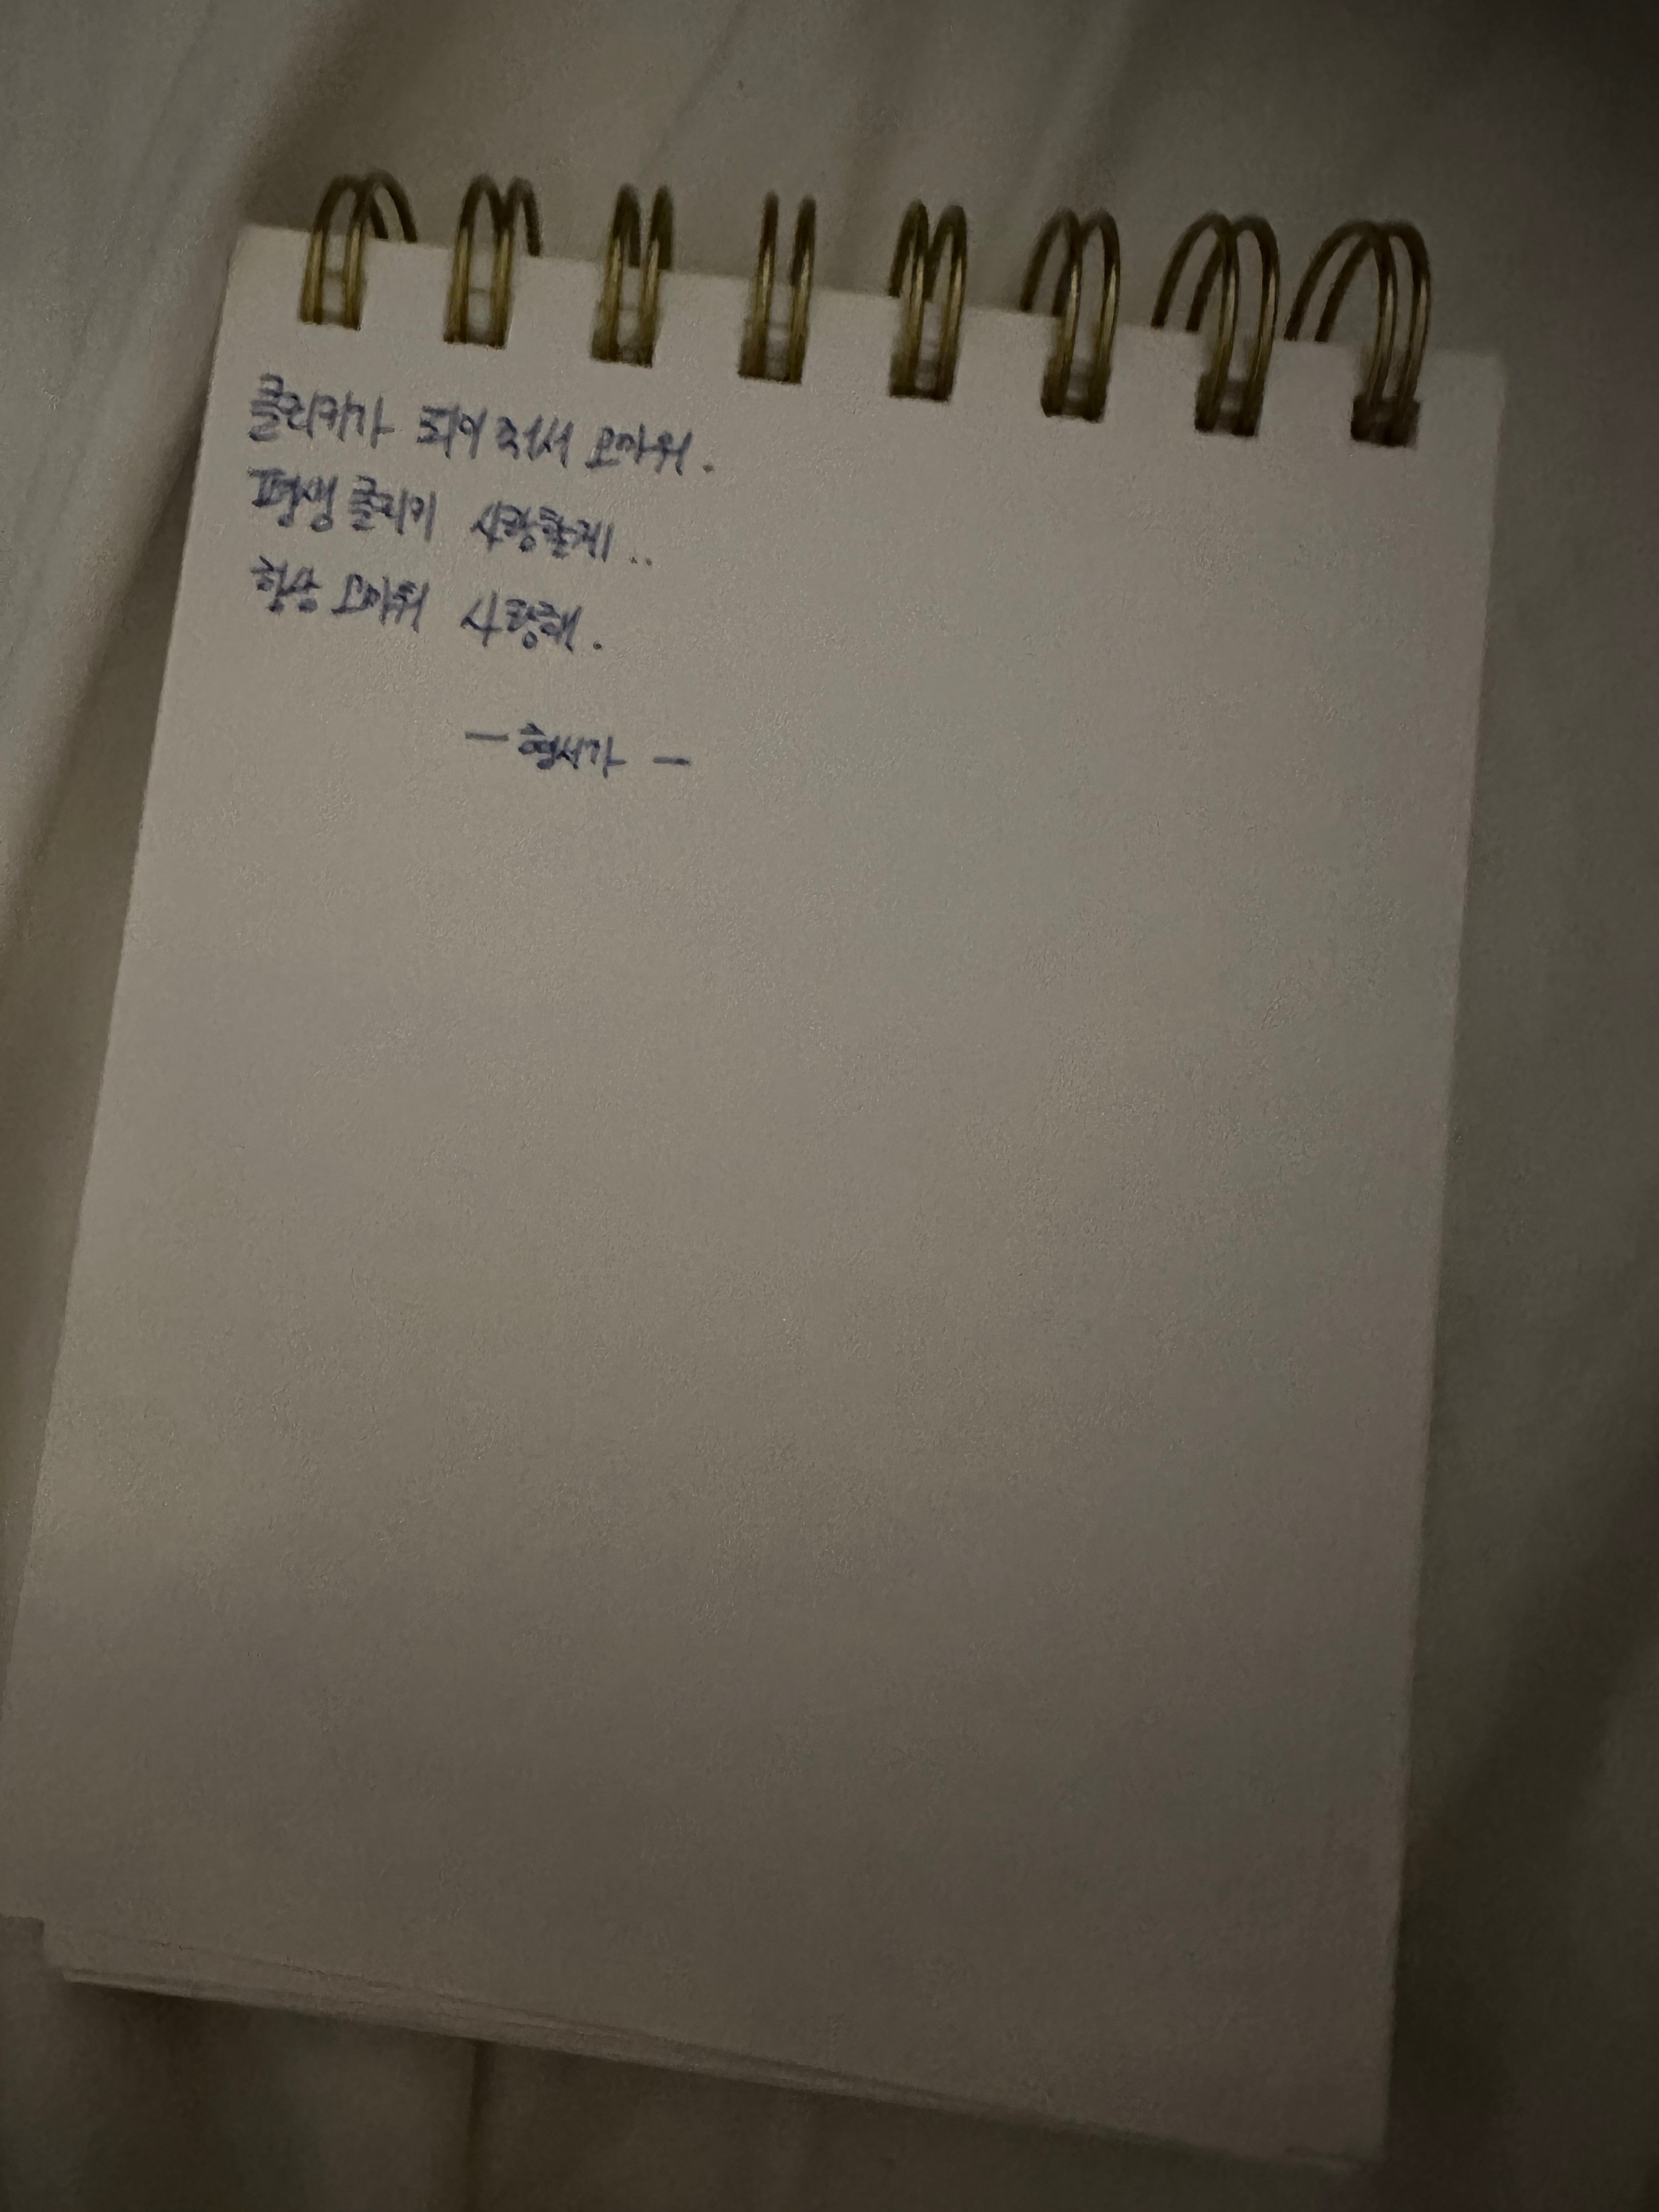 클리키가 되어줘서 고마워.
평생 클리키 사랑할게..
항상 고마워 사랑해.
— 형서가 —